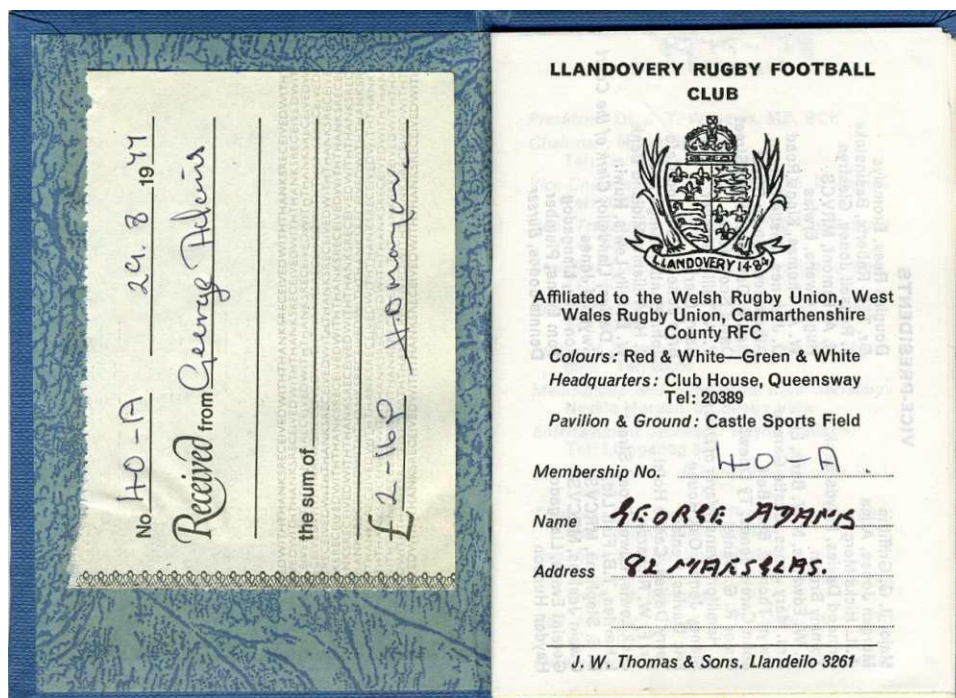 No. 40-A 29. 8 1977
Received from George Adams
the sum of
£ 2-16p
LLANDOVERY RUGBY FOOTBALL
CLUB
LLANDOVERY 1484
Affiliated to the Welsh Rugby Union, West
Wales Rugby Union, Carmarthenshire
County RFC
Colours: Red & White—Green & White
Headquarters: Club House, Queensway
Tel: 20389
Pavilion & Ground: Castle Sports Field
Membership No. 40-A.
Name GEORGE ADAMS
Address 82 MAESGLAS.
J. W. Thomas & Sons, Llandeilo 3261